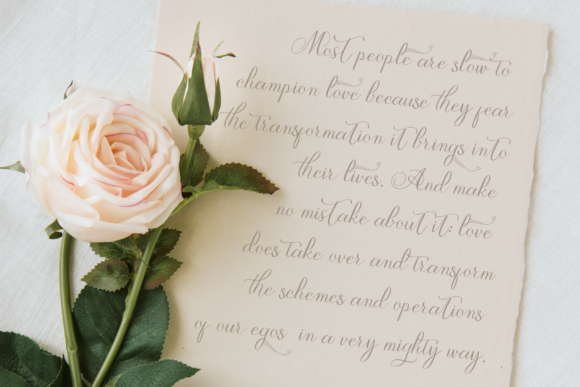 Most people are slow to
champion love because they fear
the transformation it brings into
their lives. And make
no mistake about it: love
does take over and transform
the schemes and operations
of our egos in a very mighty way.